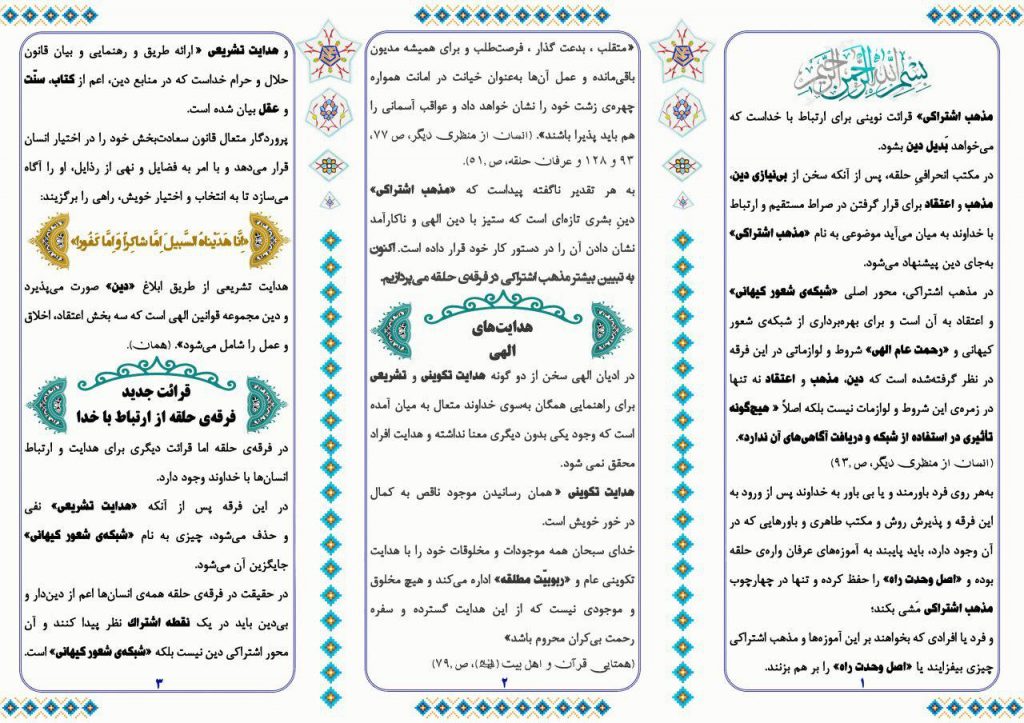 بسم الله الرحمن الرحیم
مذهب اشتراکی» قرائت نوینی برای ارتباط با خداست که
می‌خواهد بَدیل دین بشود.
در مکتب انحرافیِ حلقه، پس از آنکه سخن از بی‌نیازی دین،
مذهب و اعتقاد برای قرار گرفتن در صراط مستقیم و ارتباط
با خداوند به میان می‌آید موضوعی به نام «مذهب اشتراکی»
به‌جای دین پیشنهاد می‌شود.
در مذهب اشتراکی، محور اصلی «شبکه‌ی شعور کیهانی»
و اعتقاد به آن است و برای بهره‌برداری از شبکه‌ی شعور
کیهانی و «رحمت عام الهی» شروط و لوازماتی در این فرقه
در نظر گرفته‌شده است که دین، مذهب و اعتقاد نه تنها
در زمره‌ی این شروط و لوازمات نیست بلکه اصلاً « هیچ‌گونه
تأثیری در استفاده از شبکه و دریافت آگاهی‌های آن ندارد».
(انسان از منظری دیگر، ص ,۹۳)
به‌هر روی فرد باورمند و یا بی باور به خداوند پس از ورود به
این فرقه و پذیرش روش و مکتب طاهری و باورهایی که در
آن وجود دارد، باید پایبند به آموزه‌های عرفان واره‌ی حلقه
بوده و «اصل وحدت راه» را حفظ کرده و تنها در چهارچوب
مذهب اشتراکی مَشی بکند؛
و فرد یا افرادی که بخواهند بر این آموزه‌ها و مذهب اشتراکی
چیزی بیفزایند یا «اصل وحدت راه» را بر هم بزنند.
۱
«متقلب ، بدعت گذار ، فرصت‌طلب و برای همیشه مدیون
باقی‌مانده و عمل آن‌ها به‌عنوان خیانت در امانت همواره
چهره‌ی زشت خود را نشان خواهد داد و عواقب آسمانی را
هم باید پذیرا باشند». (انسان از منظری دیگر، ص ۷۷,
۹۳ و ۱۲۸ و عرفان حلقه، ص ,۵۱)
به هر تقدیر ناگفته پیداست که «مذهب اشتراکی»
دینِ بشری تازه‌ای است که ستیز با دین الهی و ناکارآمد
نشان دادن آن را در دستور کار خود قرار داده است. اکنون
به تبیین بیشتر مذهب اشتراکی در فرقه‌ی حلقه می‌پردازیم.
هدایت‌های
الهی
در ادیان الهی سخن از دو گونه هدایت تکوینی و تشریعی
برای راهنمایی همگان به‌سوی خداوند متعال به میان آمده
است که وجود یکی بدون دیگری معنا نداشته و هدایت افراد
محقق نمی شود.
هدایت تکوینی « همان رسانیدن موجود ناقص به کمال
در خور خویش است.
خدای سبحان همه موجودات و مخلوقات خود را با هدایت
تکوینی عام و «ربوبیّت مطلقه» اداره می‌کند و هیچ مخلوق
و موجودی نیست که از این هدایت گسترده و سفره
رحمت بی‌کران محروم باشد»
(همتایی قرآن و اهل بیت، ص ,۷۹)
۲
و هدایت تشریعی « ارائه طریق و رهنمایی و بیان قانون
حلال و حرام خداست که در منابع دین، اعم از کتاب، سنّت
و عقل بیان شده است.
پروردگار متعال قانون سعادت‌بخش خود را در اختیار انسان
قرار می‌دهد و با امر به فضایل و نهی از رذایل، او را آگاه
می‌سازد تا به انتخاب و اختیار خویش، راهی را برگزیند:
«اِنَّا هَدَیْنَاهُ السَّبیلَ اِمَّا شاکِراً وَ اِمَّا کَفُورا»
هدایت تشریعی از طریق ابلاغ «دین» صورت می‌پذیرد
و دین مجموعه قوانین الهی است که سه بخش اعتقاد، اخلاق
و عمل را شامل می‌شود». (همان).
قرائت جدید
فرقه‌ی حلقه از ارتباط با خدا
در فرقه‌ی حلقه اما قرائت دیگری برای هدایت و ارتباط
انسان‌ها با خداوند وجود دارد.
در این فرقه پس از آنکه «هدایت تشریعی» نفی
و حذف می‌شود، چیزی به نام «شبکه‌ی شعور کیهانی»
جایگزین آن می‌شود.
در حقیقت در فرقه‌ی حلقه همه‌ی انسان‌ها اعم از دین‌دار و
بی‌دین باید در یک نقطه اشتراك نظر پیدا کنند و آن
محور اشتراکی دین نیست بلکه «شبکه‌ی شعور کیهانی» است.
۳